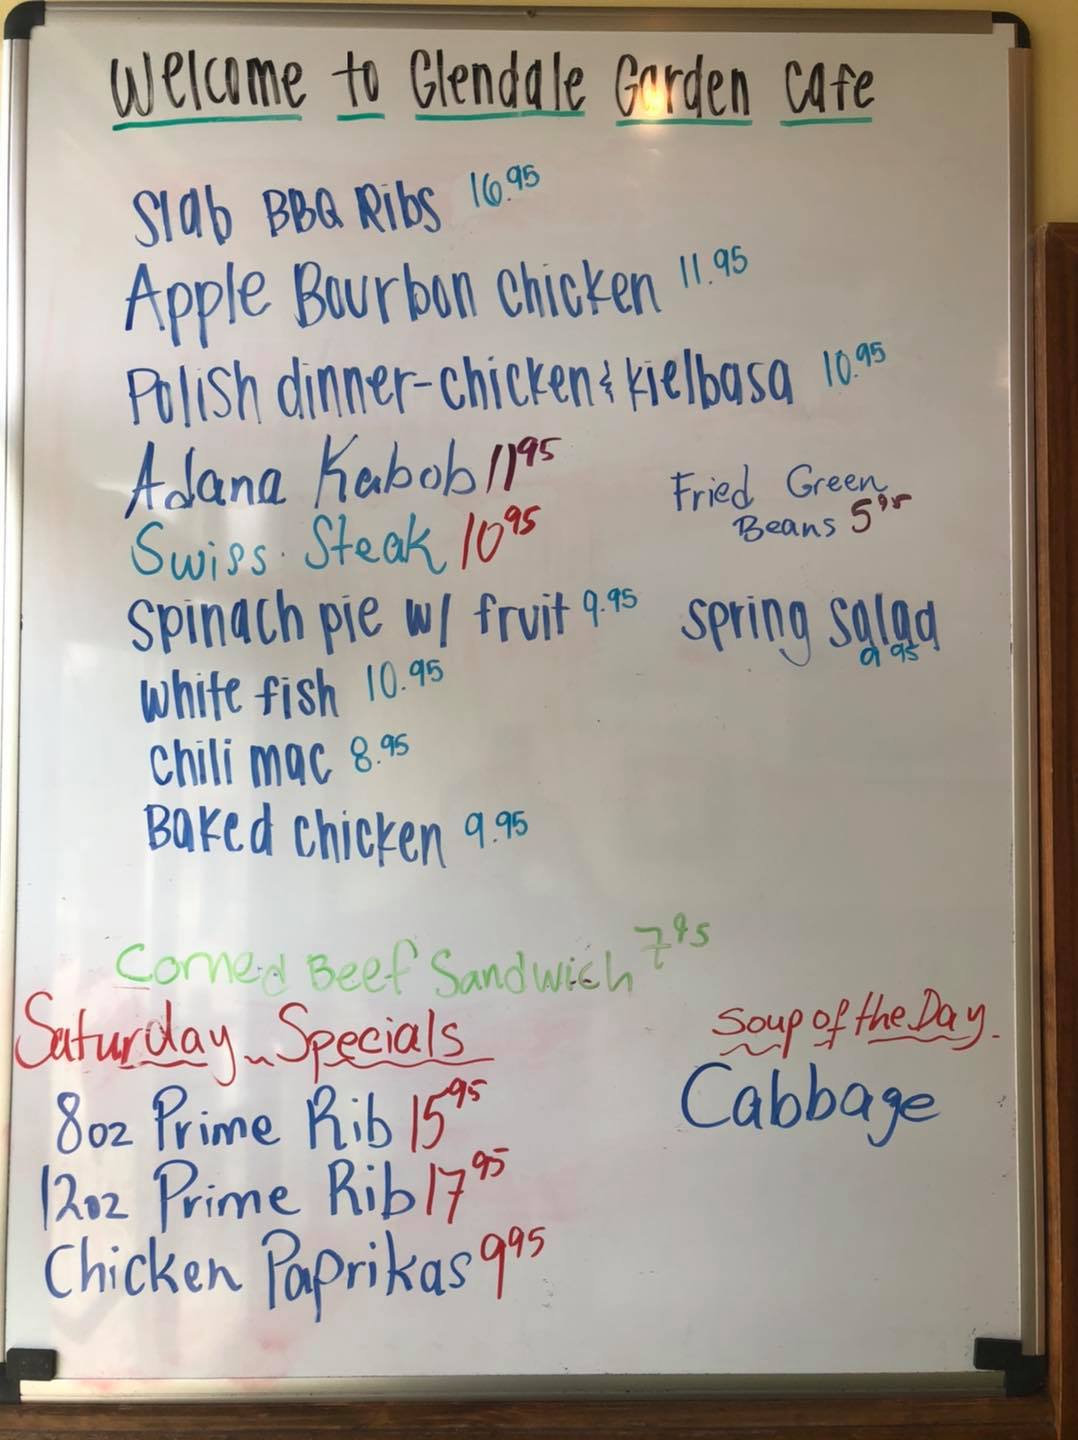 Welcome to Glendale Garden Cafe
Slab BBQ Ribs 16.95
Apple Bourbon chicken 11.95
Polish dinner-chicken & kielbasa 10.95
Adana Kabob 11 95
Swiss Steak 10 95
Fried Green
Beans 5 95
Spinach pie w/ fruit 9.95
spring salad
9 95
white fish 10.95
chili mac 8.95
Baked chicken 9.95
Corned Beef Sandwich 7 95
Saturday Specials
8oz Prime Rib 15 95
12oz Prime Rib 17 95
Chicken Paprikas 9 95
Soup of the Day.
Cabbage